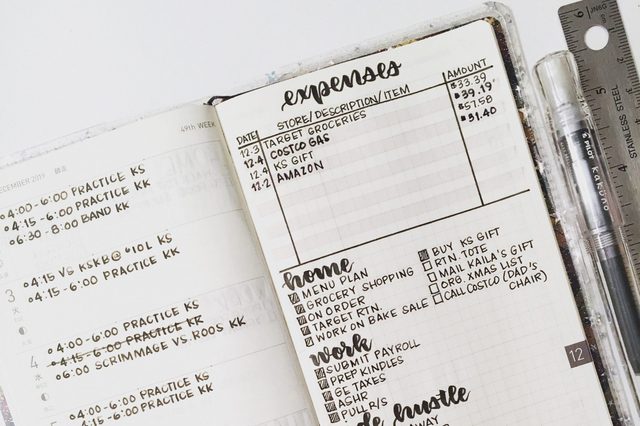 49TH WEEK
DECEMBER 2019
4:00-6:00 PRACTICE KS
4:15-6:00 PRACTICE KK
6:30-8:00 BAND KK
3
4:15 VS KSKB@ 610L KS
4:15-6:00 PRACTICE KK
4
4:00-6:00 PRACTICE KS
4:15-6:00 PRACTICE KK
6:00 SCRIMMAGE VS. ROOS KK
5
4:00-6:00 PRACTICE KS
4:15-6:00 PRACTICE KK
expenses
DATE STORE/DESCRIPTION/ITEM AMOUNT
12.3 TARGET GROCERIES $33.39
12.4 COSTCO GAS $39.19
12.4 KS GIFT $57.58
12.2 AMAZON $31.40
home
MENU PLAN
GROCERY SHOPPING
ON ORDER
TARGET RTN.
WORK ON BAKE SALE
BUY KS GIFT
RTN. TOTE
MAIL KAILA'S GIFT
ORG. XMAS LIST
CALL COSTCO (DAD'S
CHAIR)
work
SUBMIT PAYROLL
PREP KINDLES
GE TAXES
ASHR
PULL R/S
hustle
12
PILOT KAKÜNO
STAINLESS STEEL
6
5
4